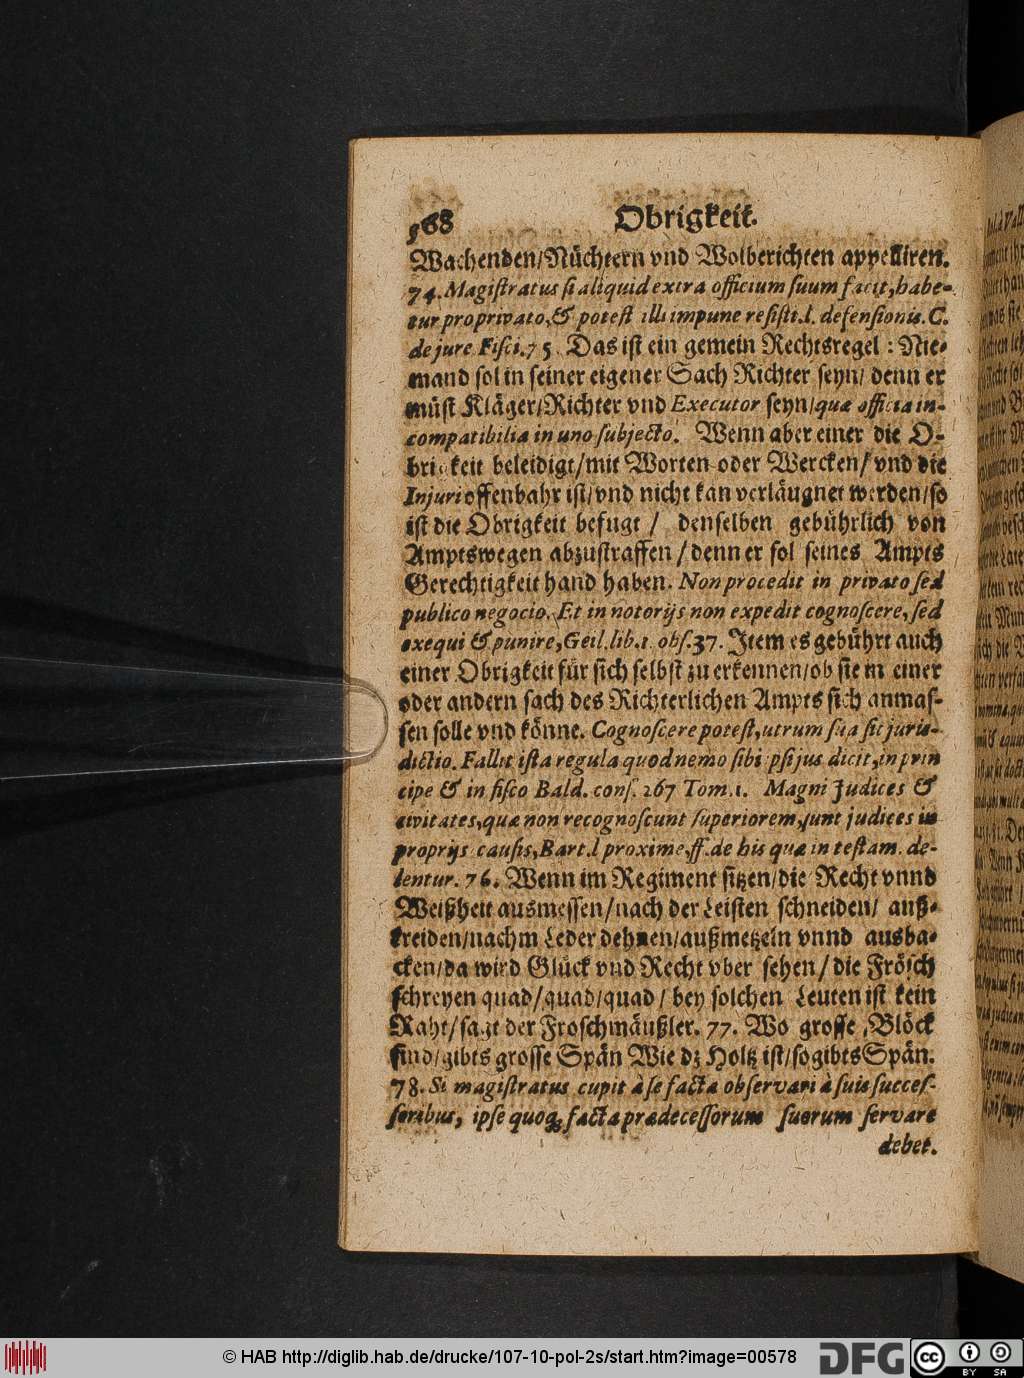 568 Obrigkeit.
Wachenden/Nüchtern vnd Wolberichten appelliren.
74. Magiſtratus ſi aliquid extra officium ſuum facit, habe-
tur pro privato, & poteſt illi impune reſiſti. l. defenſionis. C.
de jure Fiſci. 75. Das iſt ein gemein Rechtsregel: Nie-
mand ſol in ſeiner eigener Sach Richter ſeyn/ denn er
müſt Kläger/Richter vnd Executor ſeyn/ quæ officia in-
compatibilia in uno ſubjecto. Wenn aber einer die O-
brigkeit beleidigt/mit Worten oder Wercken/ vnd die
Injuri offenbahr iſt/vnd nicht kan verläugnet werden/ſo
iſt die Obrigkeit befugt / denſelben gebührlich von
Amptswegen abzuſtraffen/denn er ſol ſeines Ampts
Gerechtigkeit hand haben. Non procedit in privato ſed
publico negocio. Et in notorijs non expedit cognoſcere, ſed
exequi & punire, Geil. lib. 1. obſ. 37. Item es gebührt auch
einer Obrigkeit für ſich ſelbſt zu erkennen/ob ſie in einer
oder andern ſach des Richterlichen Ampts ſich anmaſ-
ſen ſolle vnd könne. Cognoſcere poteſt, utrum ſua ſit juris-
dictio. Fallit iſta regula quod nemo ſibi ipſi jus dicit, in prin
cipe & in fiſco Bald. conſ. 267 Tom. 1. Magni Judices &
civitates, quæ non recognoſcunt ſuperiorem, ſunt judices in
proprijs cauſis, Bart. l proxime, ff. de his quæ in teſtam. de-
lentur. 76. Wenn im Regiment ſitzen/die Recht vnnd
Weißheit ausmeſſen/nach der Leiſten ſchneiden/ auß-
kreiden/nachm Leder dehnen/außmetzeln vnnd ausba-
cken/da wird Glück vnd Recht vber ſehen/ die Fröſch
ſchreyen quad/quad/quad/ bey ſolchen Leuten iſt kein
Raht/ſagt der Froſchmäußler. 77. Wo groſſe Blöck
ſind/gibts groſſe Spän Wie dz Holtz iſt/ſo gibts Spän.
78. Si magiſtratus cupit à ſe facta obſervari à ſuis ſucceſ-
ſoribus, ipſe quoq; facta prædeceſſorum ſuorum ſervare
debet.
© HAB http://diglib.hab.de/drucke/107-10-pol-2s/start.htm?image=00578
DFG
cc BY SA